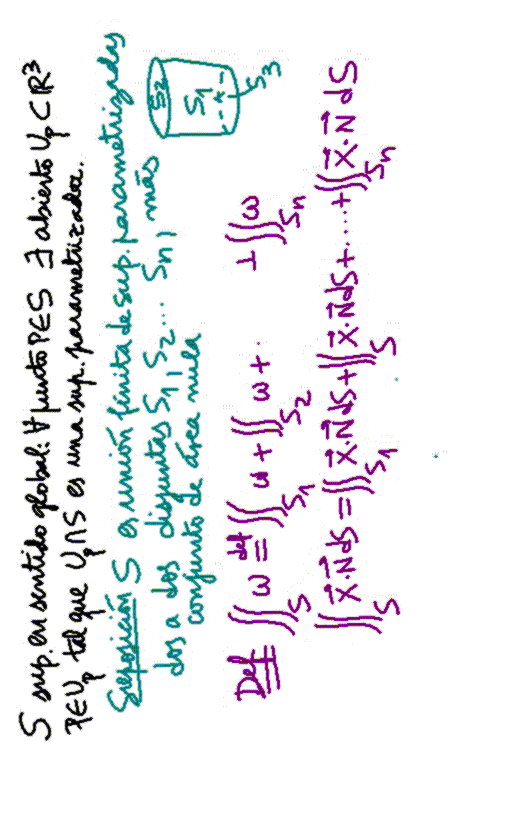 S sup. en sentido global: ∀ punto P∈S ∃ abierto U_p⊂ℝ³
P∈U_p tal que U_p∩S es una sup. parametrizada.
Suposición S es unión finita de sup. parametrizadas
dos a dos disjuntas S_1, S_2 ... S_n, más
conjunto de área nula
S_2
S_1
S_3
Def ∬_S ω def= ∬_{S_1} ω + ∬_{S_2} ω + . ⊥ ∬_{S_n} ω
∬_S X⃗·N⃗dS = ∬_{S_1} X⃗·N⃗dS + ∬_S X⃗·N⃗dS + .... + ∬_{S_n} X⃗·N⃗ dS